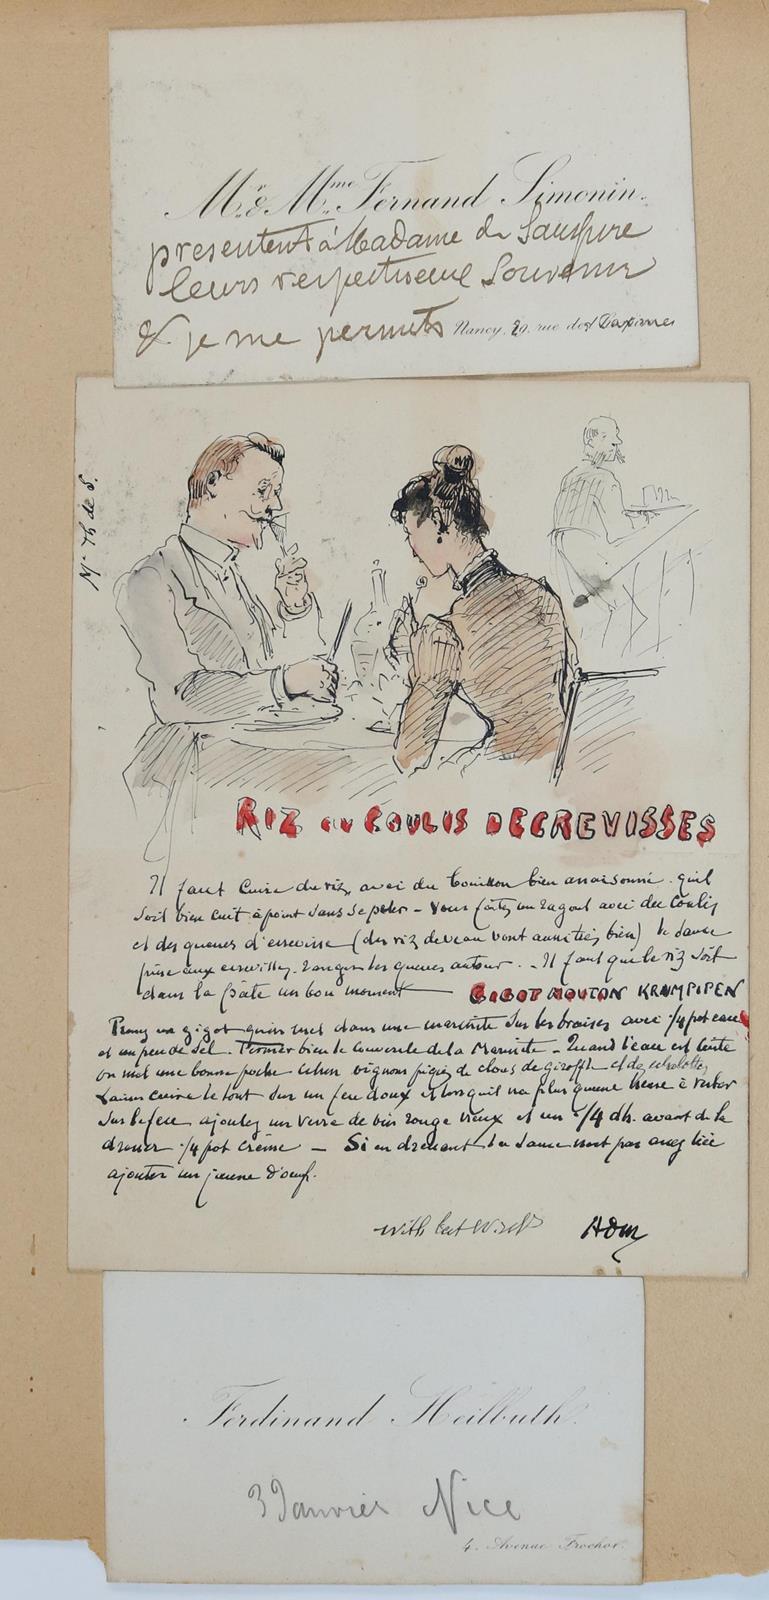 Mr. & Mme. Fernand Simonin.
présentent à Madame de Saussure
leurs respectueux Souvenir
& je me permets Nancy, 29, rue des
Me Th de S.
RIZ au COULIS DECREVISSES
Il faut Cuire du riz avec du bouillon bien assaisonné. qu'il
soit bien cuit à point sans se peler – Vous faites un ragout avec du Coulis
et des queues d'ecrevisse (des riz de veau vont aussi très bien) la Sauce
prise aux ecrevisses. rangez les queues autour. – Il faut que le riz soit
dans la un bon moment GIGOT MOUTON KRAMPIPEN
Prenez un gigot qu'on met dans une marmite sur les braises avec 1/4 pot eau
et un peu de sel. Fermer bien le couvercle de la Marmite – Quand l'eau est
on met une bonne poche oignons piqués de clous de giroffle et de echalottes
Laissez cuire le tout sur un feu doux et lorsqu'il n'a plus qu'une heure à rester
sur le feu ajoutez un verre de vin rouge vieux et un 1/4 dh. avant de la
dresser 1/4 pot crème – Si en dressant la Sauce n'est pas assez liée
ajouter un jaune d'oeuf.
with best
Ferdinand Heilbuth.
3 Janvier Nice
4. Avenue Frochot.